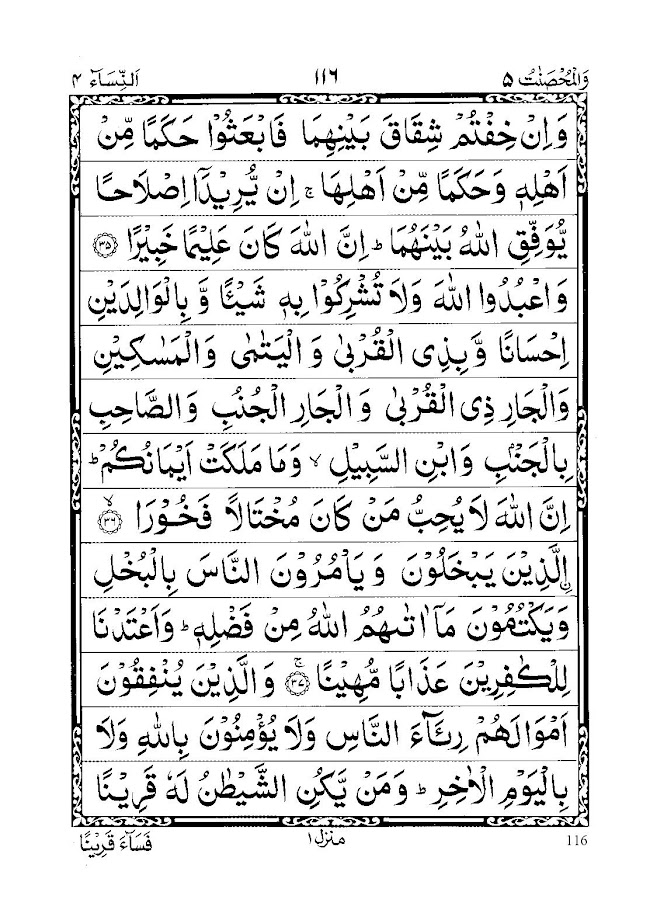 وَالْمُحْصَنٰتُ ۵ ۱۱۶ اَلنِّسَآء ۴
وَاِنْ خِفْتُمْ شِقَاقَ بَيْنِهِمَا فَابْعَثُوْا حَكَمًا مِّنْ
اَهْلِهٖ وَحَكَمًا مِّنْ اَهْلِهَا ۚ اِنْ يُّرِيْدَآ اِصْلَاحًا
يُّوَفِّقِ اللّٰهُ بَيْنَهُمَا ؕ اِنَّ اللّٰهَ كَانَ عَلِيْمًا خَبِيْرًا ۝۳۵
وَاعْبُدُوا اللّٰهَ وَلَا تُشْرِكُوْا بِهٖ شَيْئًا وَّ بِالْوَالِدَيْنِ
اِحْسَانًا وَّبِذِى الْقُرْبٰى وَالْيَتٰمٰى وَالْمَسٰكِيْنِ
وَالْجَارِ ذِى الْقُرْبٰى وَالْجَارِ الْجُنُبِ وَالصَّاحِبِ
بِالْجَنْۢبِ وَابْنِ السَّبِيْلِ ۙ وَمَا مَلَكَتْ اَيْمَانُكُمْ ؕ
اِنَّ اللّٰهَ لَا يُحِبُّ مَنْ كَانَ مُخْتَالًا فَخُوْرَا ۙ۝۳۶
اۨلَّذِيْنَ يَبْخَلُوْنَ وَيَاْمُرُوْنَ النَّاسَ بِالْبُخْلِ
وَيَكْتُمُوْنَ مَآ اٰتٰىهُمُ اللّٰهُ مِنْ فَضْلِهٖ ؕ وَاَعْتَدْنَا
لِلْكٰفِرِيْنَ عَذَابًا مُّهِيْنًا ۚ۝۳۷ وَالَّذِيْنَ يُنْفِقُوْنَ
اَمْوَالَهُمْ رِئَآءَ النَّاسِ وَلَا يُؤْمِنُوْنَ بِاللّٰهِ وَلَا
بِالْيَوْمِ الْاٰخِرِ ؕ وَمَنْ يَّكُنِ الشَّيْطٰنُ لَهٗ قَرِيْنًا
116 منزل ۱ فَسَآءَ قَرِيْنًا